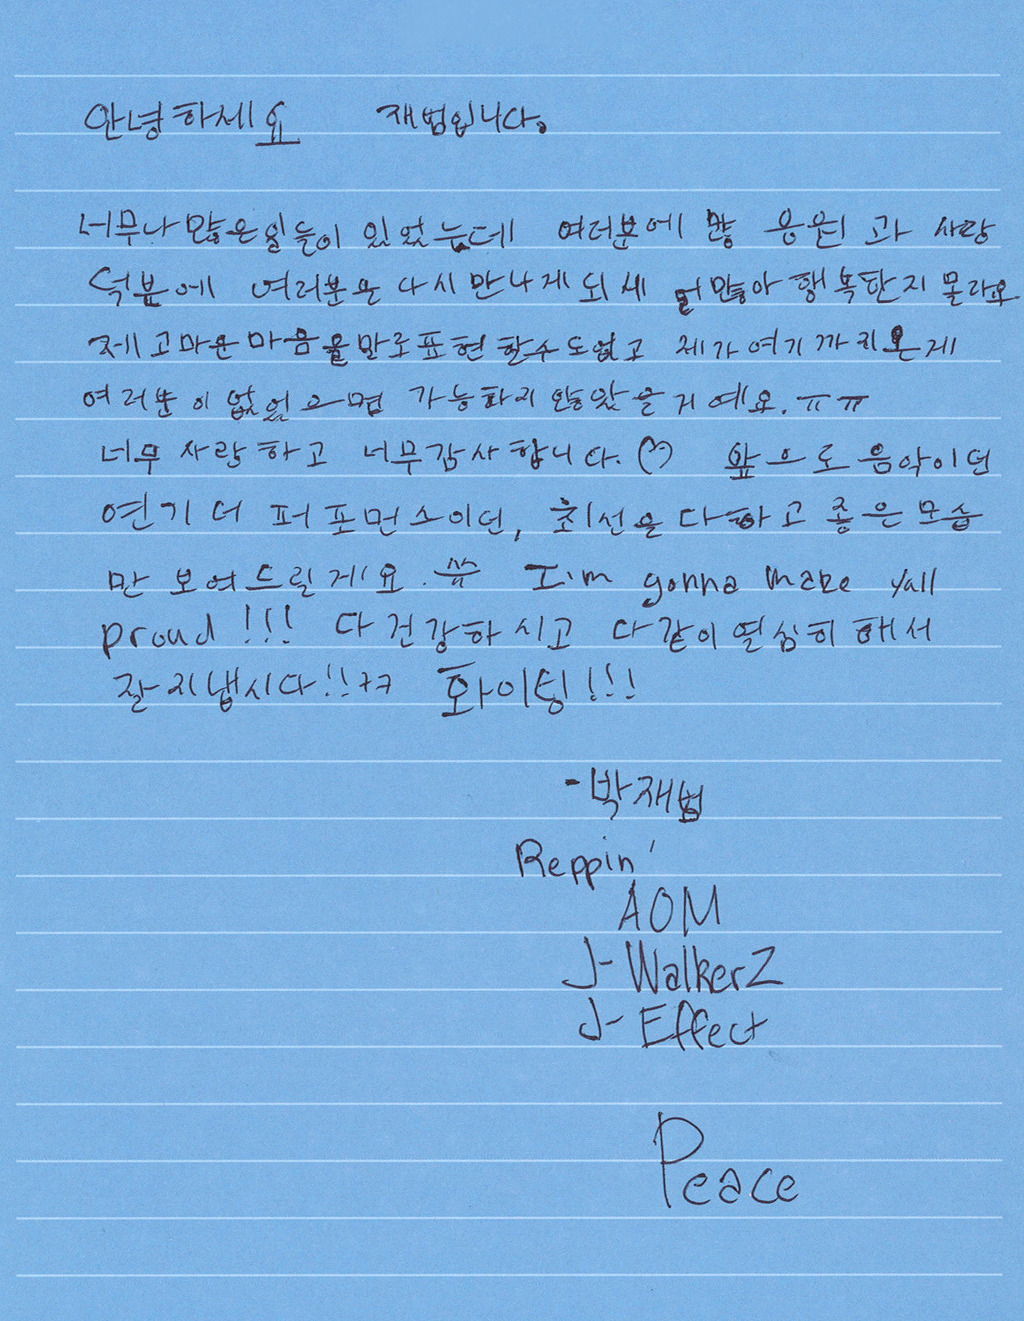 안녕하세요 재범입니다.
너무나 많은 일들이 있었는데 여러분에 많 응원과 사랑
덕분에 여러분은 다시 만나게 되 세 많아 행복한지 몰라요
제 고마운 마음을 말로 표현 할수도 없고 제가 여기까지 온게
여러분이 없었으면 가능하지 않았을거예요. ㅠㅠ
너무 사랑하고 너무 감사합니다. 앞으로 음악이던
연기 더 퍼포먼스이던, 최선을 다하고 좋은 모습
만 보여드릴게요. ^^ I'm gonna make yall
proud!!! 다 건강하시고 다같이 열심히 해서
잘 지냅시다!!ㅋㅋ 화이팅!!!
-박재범
Reppin'
AOM
J-WalkerZ
J-Effect
Peace